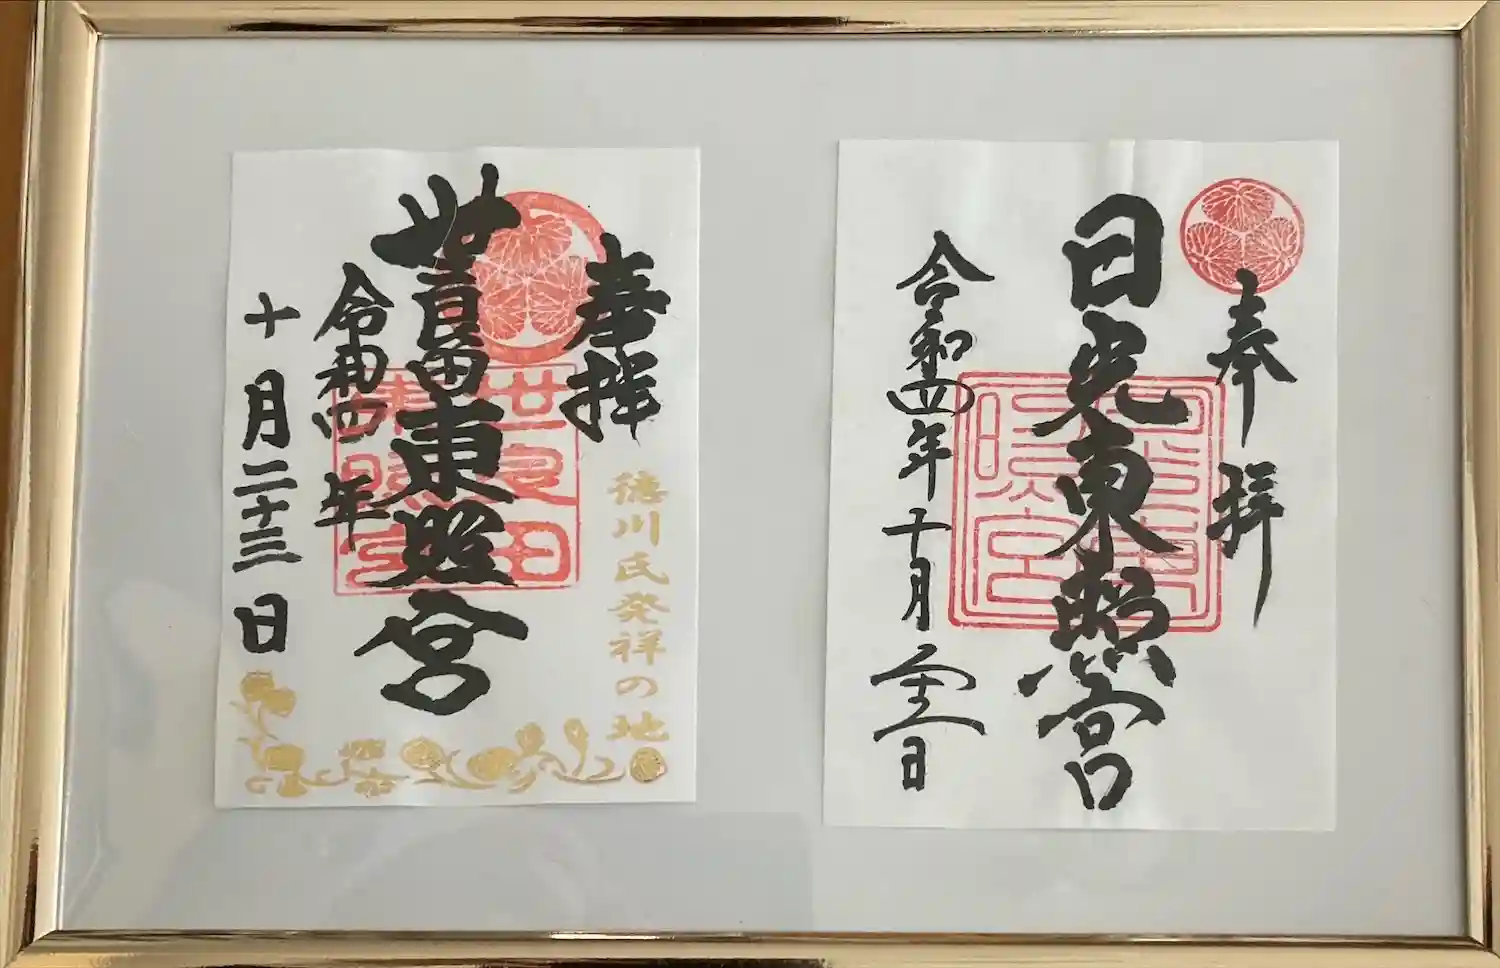 奉拝
日光東照宮
令和四年十月二十三日
奉拝
徳川氏発祥の地
世良田東照宮
世良田
東照宮
令和四年
十月二十三日